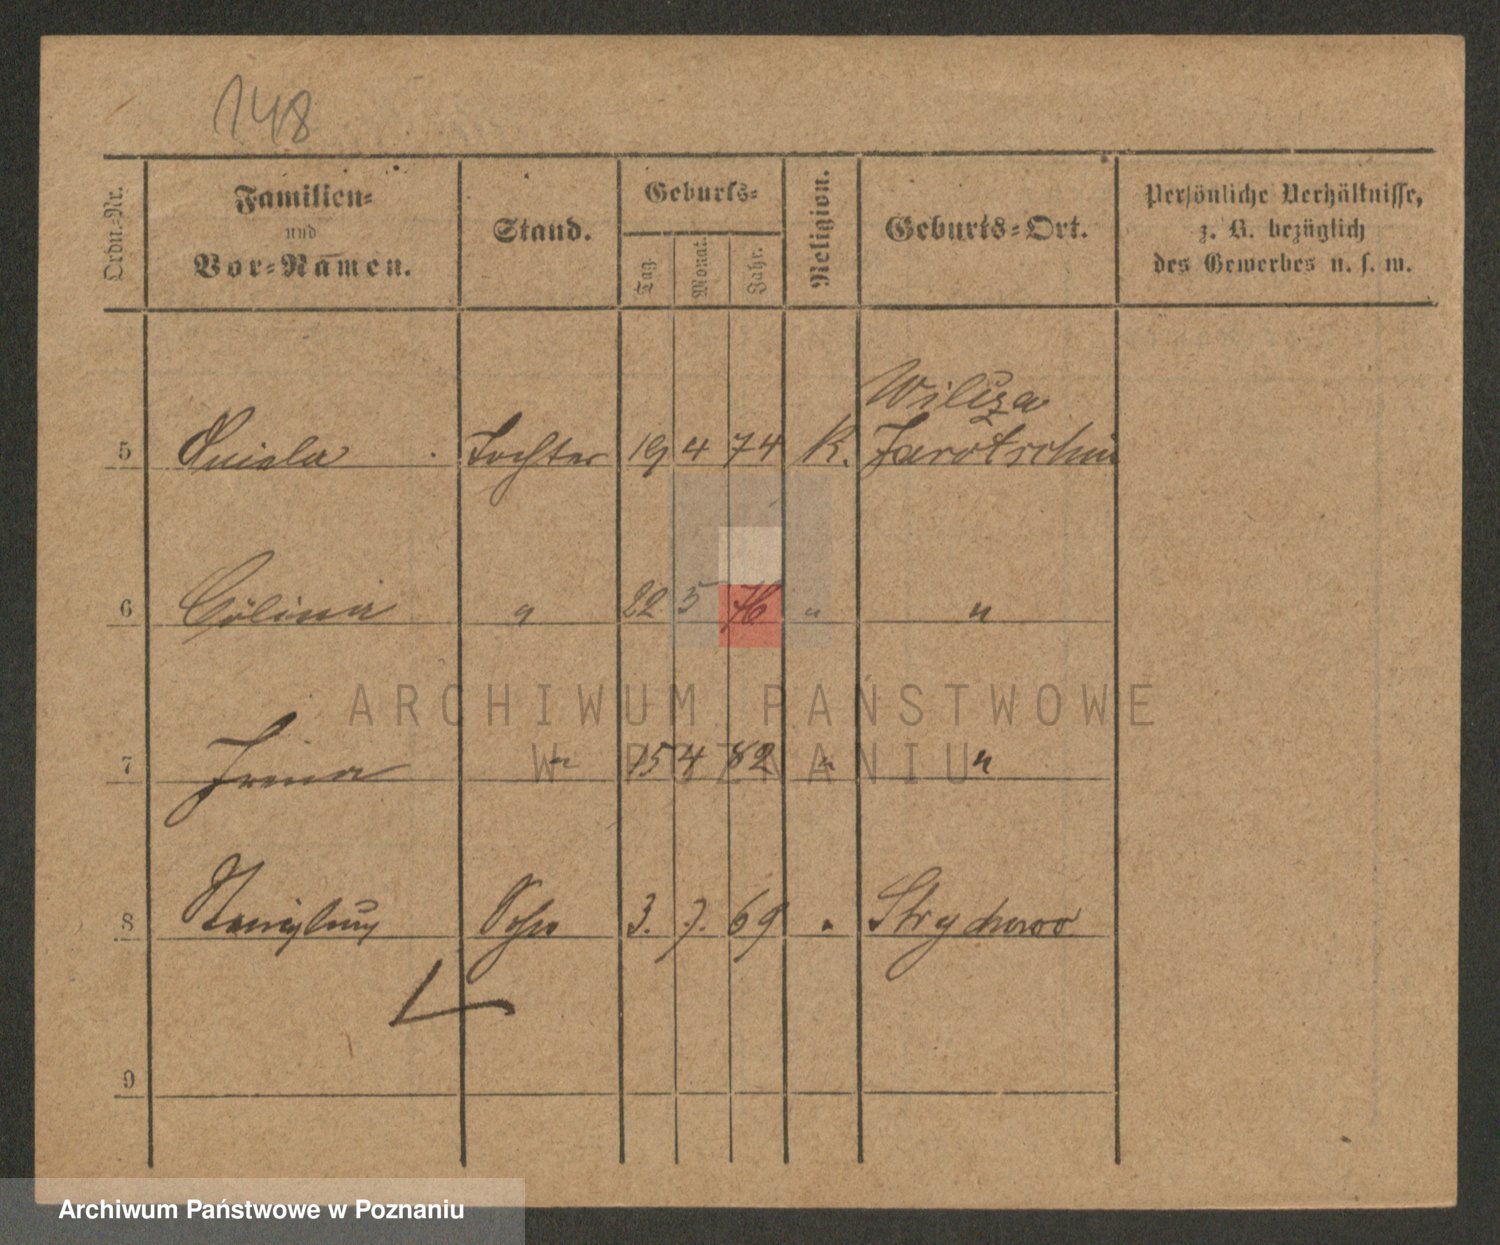 148
Ordn.-Nr.
Familien-
und
Vor-Namen.
Stand.
Geburts-
Tag. Monat. Jahr.
Religion.
Geburts-Ort.
Persönliche Verhältnisse,
z. B. bezüglich
des Gewerbes u. s. w.
Wilcza
5 Tochter 19 4 74 K. Jarotschin
6 Cölina " 22 5 76 " "
ARCHIWUM PAŃSTWOWE
W POZNANIU
7 Irena " 15 4 82 " "
8 Sohn 3. 7. 69 " Strychowo
9
Archiwum Państwowe w Poznaniu